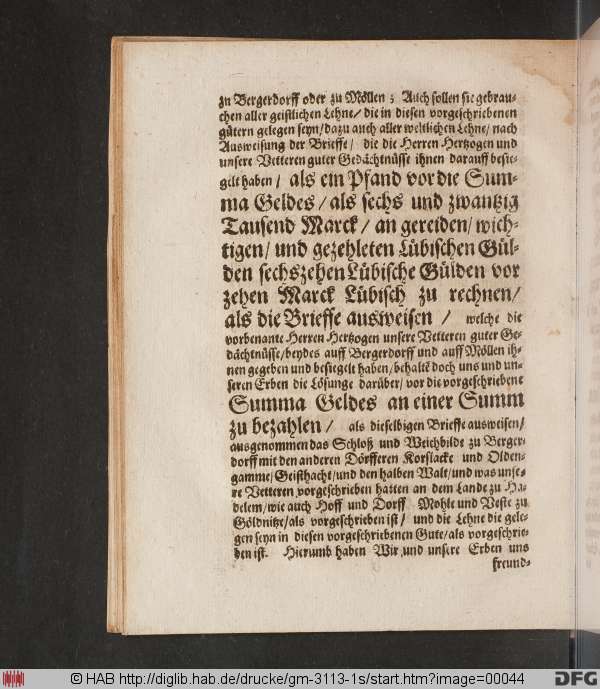 zu Bergerdorff oder zu Möllen; Auch sollen sie gebrau-
chen aller geistlichen Lehne/ die in diesen vorgeschriebenen
gütern gelegen seyn/ dazu auch aller weltlichen Lehne/ nach
Ausweisung der Brieffe/ die die Herren Hertzogen und
unsere Vetteren guter Gedächtnüsse ihnen darauff besie-
gelt haben/ als ein Pfand vor die Sum-
ma Geldes/ als sechs und zwantzig
Tausend Marck/ an gereiden/ wich-
tigen/ und gezehleten Lübischen Gül-
den sechszehen Lübische Gülden vor
zehen Marck Lübisch zu rechnen/
als die Brieffe ausweisen/ welche die
vorbenante Herren Hertzogen unsere Vetteren guter Ge-
dächtnüsse/ beydes auff Bergerdorff und auff Möllen ih-
nen gegeben und besiegelt haben/ behalte doch uns und un-
seren Erben die Lösunge darüber/ vor die vorgeschriebene
Summa Geldes an einer Summ
zu bezahlen/ als dieselbigen Brieffe ausweisen/
ausgenommen das Schloß und Weichbilde zu Berger-
dorff mit den anderen Dörfferen Korslacke und Olden-
gamme/ Geisthacht/ und den halben Walt/ und was unse-
re Vetteren vorgeschrieben hatten an dem Lande zu Ha-
delem/ wie auch Hoff und Dorff Mohle und Veste zu
Göldnitze/ als vorgeschrieben ist/ und die Lehne die gele-
gen seyn in diesen vorgeschriebenen Gute/ als vorgeschrie-
ben ist. Hierumb haben Wir und unsere Erben uns
freund-
© HAB http://diglib.hab.de/drucke/gm-3113-1s/start.htm?image=00044
DFG